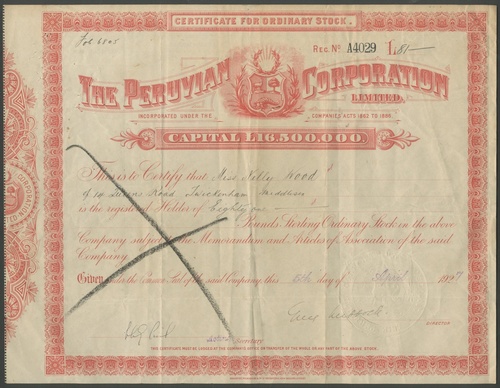 CERTIFICATE FOR ORDINARY STOCK.
Fol 6505
REG. No. A4029 £81—
THE PERUVIAN CORPORATION
LIMITED.
INCORPORATED UNDER THE COMPANIES ACTS 1862 TO 1886.
CAPITAL £16,500,000.
This is to Certify that Miss Nelly Hood
of 14 Road Twickenham Middlesex
is the registered Holder of Eighty one
Pounds Sterling Ordinary Stock in the above
Company subject to the Memorandum and Articles of Association of the said
Company.
Given under the Common Seal of the said Company, this day of April 1927
DIRECTOR
Secretary
THIS CERTIFICATE MUST BE LODGED AT THE COMPANY'S OFFICE ON TRANSFER OF THE WHOLE OR ANY PART OF THE ABOVE STOCK.